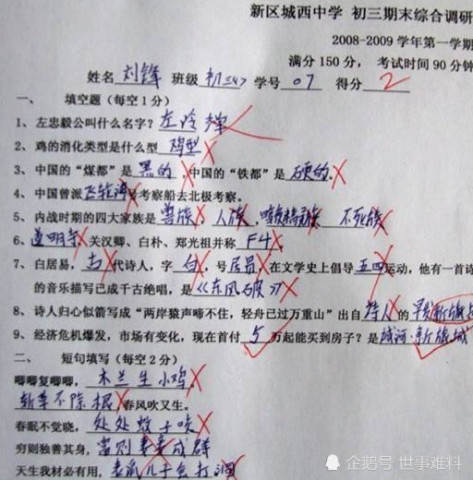 新区城西中学 初三期末综合调研
2008-2009 学年第一学期
满分 150 分，考试时间 90 分钟
姓名 刘锋 班级 初三 学号 07 得分 2
一、 填空题（每空1分）
1、左忠毅公叫什么名字？左冷禅
2、鸡的消化类型是什么型 鸡型
3、中国的“煤都”是 黑的，中国的“铁都”是 硬的。
4、中国曾派 飞轮海 号考察船去北极考察。
5、内战时期的四大家族是 兽族、人族、暗夜精灵族、不死族
6、道明寺、关汉卿、白朴、郑光祖并称 F4。
7、白居易，古代诗人，字 白，号 居易 在文学史上倡导 五四 运动，他有一首诗
的音乐描写已成千古绝唱，是《东风破》
8、诗人归心似箭写成“两岸猿声啼不住，轻舟已过万重山”出自 诗人 的
9、经济危机爆发，市场有变化，现在首付 5 万起能买到房子？是 城河·新旗城
二、 短句填写（每空2分）
唧唧复唧唧，木兰生小鸡。
斩草不除根，春风吹又生。
春眠不觉晓，处处蚊子咬。
穷则独善其身，富则妻妾成群
天生我材必有用，老鼠儿子会打洞
企鹅号 世事难料